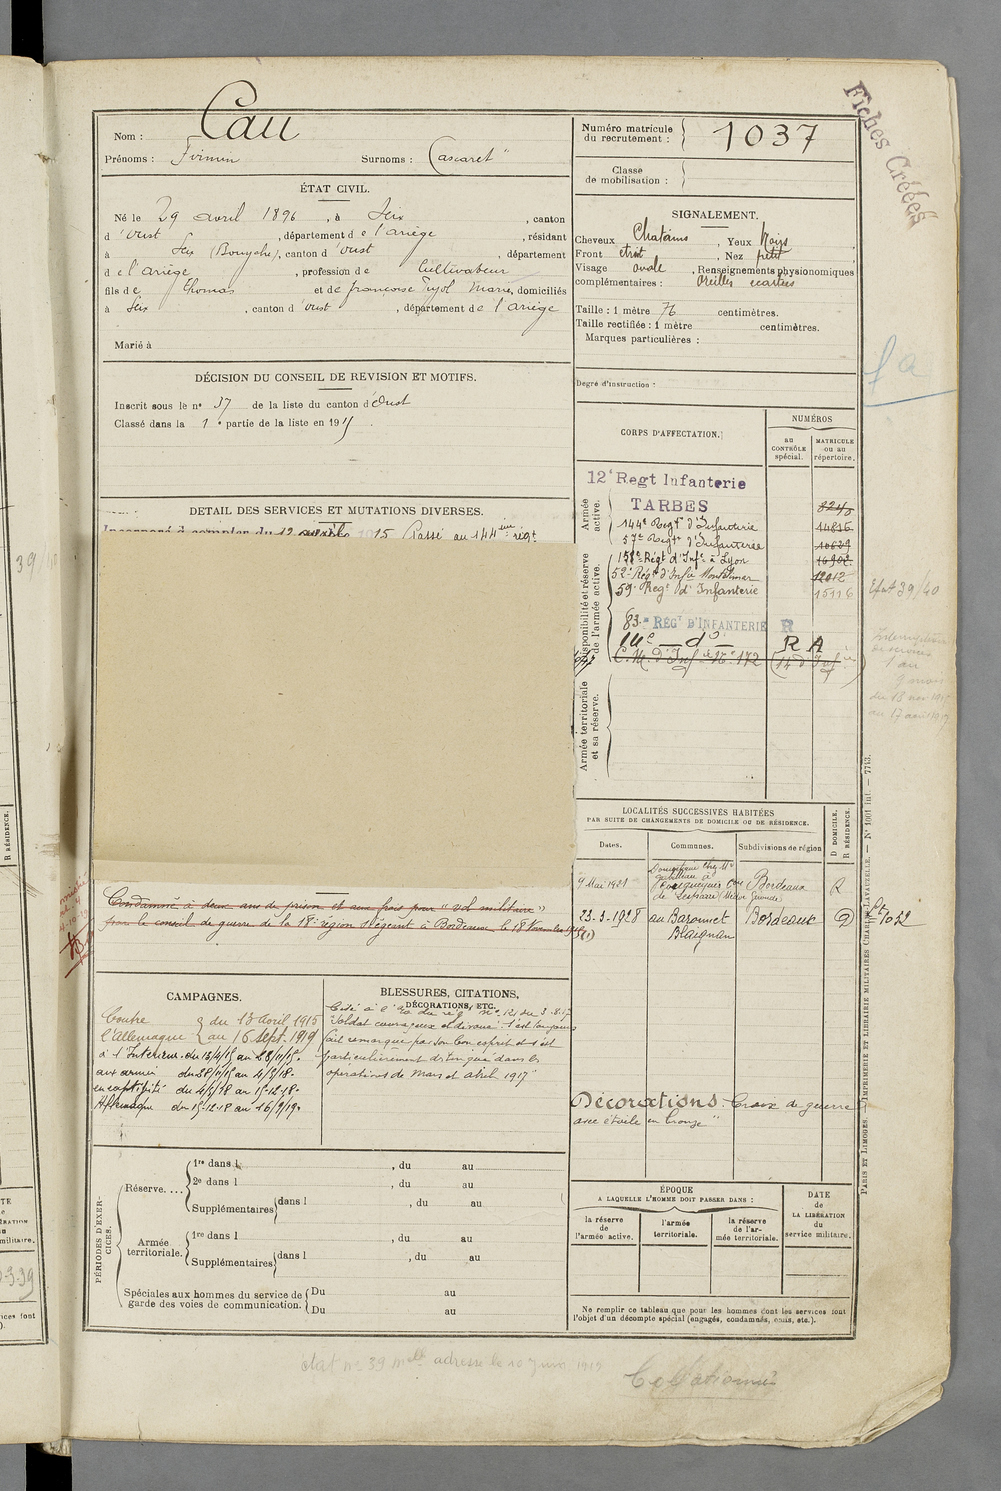 Nom : Cau
Prénoms : Firmin Surnoms : Cascaret"
ÉTAT CIVIL.
Né le 29 avril 1896, à Seix, canton
d'Oust, département de l'ariège, résidant
à Seix (Bouyche), canton d'oust, département
de l'ariège, profession de Cultivateur
fils de Thomas et de françoise Pujol Marie, domiciliés
à Seix, canton d'oust, département de l'ariège
Marié à
DÉCISION DU CONSEIL DE REVISION ET MOTIFS.
Inscrit sous le nº 37 de la liste du canton d'Oust
Classé dans la 1e partie de la liste en 1915.
DETAIL DES SERVICES ET MUTATIONS DIVERSES.
Incorporé à compter du 12 avril 1915 Passé au 144ème régt
Condamné à deux ans de prison et aux frais pour "vol militaire"
par le conseil de guerre de la 18e région siégeant à Bordeaux le 18 Novembre
CAMPAGNES.
Contre l'Allemagne { du 13 avril 1915
au 16 sept. 1919
à l'Intérieur du 13/4/15 au 28/11/15.
aux armées du 28/11/15 au 4/5/18.
en captivité du 4/5/18 au 15-12-18.
Allemagne du 15-12-18 au 16/9/19.
BLESSURES, CITATIONS,
DÉCORATIONS, ETC.
Cité à l'O. du rég. Nº 121 du 3.8.17
"Soldat courageux et dévoué s'est toujours
fait remarqué par son bon esprit et s'est
particulièrement distingué dans les
opérations de Mars et abril 1917"
Décorations : Croix de guerre
avec étoile en bronze"
PÉRIODES D'EXERCICES.
Réserve....
1re dans l , du au
2e dans l , du au
Supplémentaires dans l , du au
Armée territoriale.
1re dans l , du au
Supplémentaires dans l , du au
Spéciales aux hommes du service de garde des voies de communication.
Du au
Du au
Numéro matricule du recrutement : 1037
Classe de mobilisation :
SIGNALEMENT.
Cheveux Chatains, Yeux Noirs
Front étroit, Nez petit
Visage ovale, Renseignements physionomiques
complémentaires : Oreilles écartées
Taille : 1 mètre 76 centimètres.
Taille rectifiée : 1 mètre centimètres.
Marques particulières :
Degré d'instruction :
CORPS D'AFFECTATION.
NUMÉROS
au CONTRÔLE spécial.
MATRICULE ou au répertoire.
Armée active.
12e Regt Infanterie
TARBES
144e Regt d'Infanterie 14816
57e Regt d'Infanterie 10629
Disponibilité et réserve de l'armée active.
158e Régt d'Infie à Lyon
52e Régt d'Infie Montélimar 12012
59e Regt d'Infanterie 15116
83e RÉGt D'INFANTERIE R
14e — do — R A
C. M. d'Inf de Nº 172 (14 d'Infie)
Armée territoriale et sa réserve.
LOCALITÉS SUCCESSIVES HABITÉES
PAR SUITE DE CHANGEMENTS DE DOMICILE OU DE RÉSIDENCE.
Dates.
Communes.
Subdivisions de région
D DOMICILE.
R RÉSIDENCE.
9 Mai 1921 Domestique chez Mr Bordeaux R
23-3-1928 au Barounet Blaignan Bordeaux D
ÉPOQUE
A LAQUELLE L'HOMME DOIT PASSER DANS :
la réserve de l'armée active.
l'armée territoriale.
la réserve de l'armée territoriale.
DATE de LA LIBÉRATION du service militaire.
Ne remplir ce tableau que pour les hommes dont les services font
l'objet d'un décompte spécial (engagés, condamnés, omis, etc.).
Fiches Créées
Interruption
de services
1 an
9 mois
PARIS ET LIMOGES. — IMPRIMERIE ET LIBRAIRIE MILITAIRES CHARLES-LAVAUZELLE. — Nº 1001 int. — 7713.
état nº 39 adressé le 10 Juin 1919
Collationné